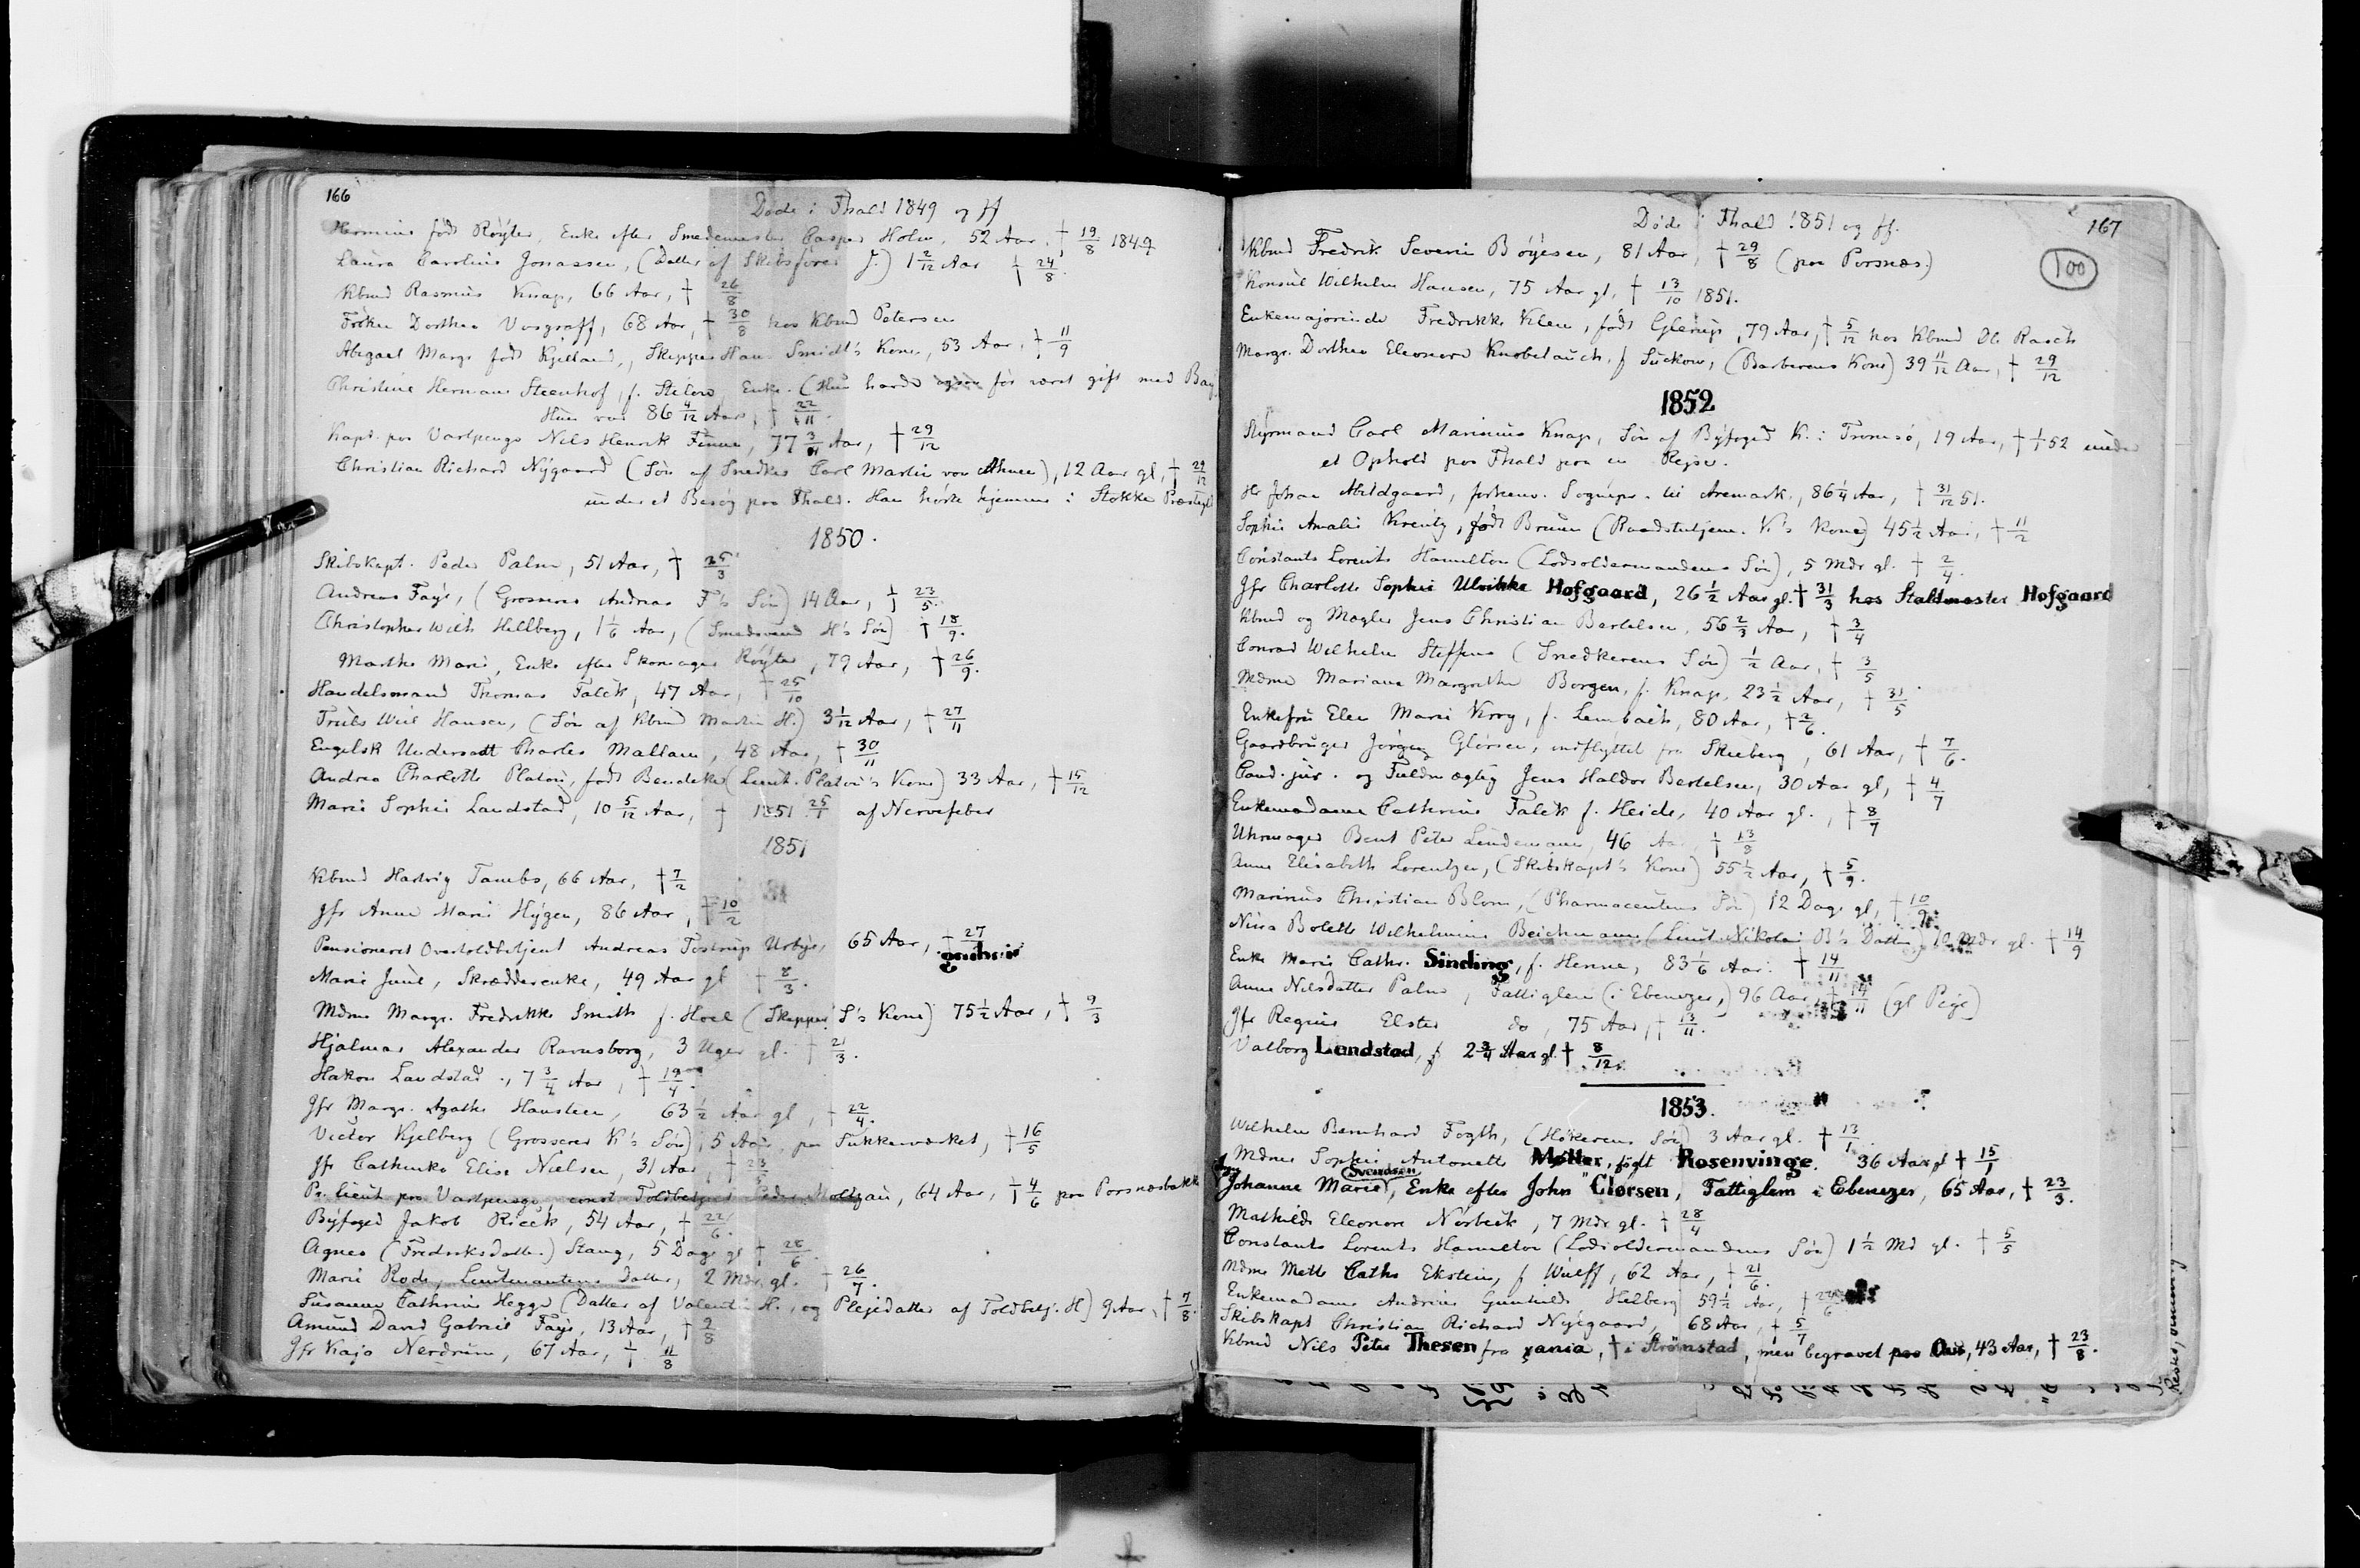 166
Døde i Fhald 1849 og ff
Hermine født Røyter, Enke efter Smedemester Casper Holm, 52 Aar, † 19/8 1849
Laura Caroline Jonassen, (Datter af Skibsfører J.) 1 2/12 Aar † 24/8.
Kbmd Rasmus Knap, 66 Aar, † 26/8
Frøken Dorthea Vosgraff, 68 Aar, † 30/8 hos Kbmd Petersen
Abigael Margr født Kjelland, Skipper Hans Smidt's Kone, 53 Aar, † 11/9
Christine Hermane Steenhof, f. Enke. (Hun havde før været gift med
Hun var 86 4/12 Aar, † 22/11.
Kapt. paa Vartpenge Nils Henrik Finne, 77 Aar, † 29/12
Christian Richard Nygaard (Søn af Snedker Carl Martin von Ahnen), 12 Aar gl, † 29/12
under et Besøg paa Fhald. Han hørte hjemme i Stokke Præstegj
1850.
Skibskapt. Peder Palm, 51 Aar, † 25/3
Andreas Faye, (Grosserer Andreas F's Søn) 14 Aar, † 23/5.
Christopher Wilh Hellberg, 1 1/6 Aar, (Smedsvend H's Søn) † 18/9.
Marthe Marie, Enke efter Skomager Røyter, 79 Aar, † 26/9.
Handelsmand Thomas Falck, 47 Aar, † 25/10
Truls Wiel Hansen, (Søn af Kbmd Martin H.) 3 1/12 Aar, † 27/11
Engelsk Undersaat Charles Mallam, 48 Aar, † 30/11
Andrea Charlotte Platou, født Bendeke (Lieut. Platou's Kone) 33 Aar, † 15/12
Marie Sophie Landstad, 10 5/12 Aar, † 1851 25/1 af Nervefeber
1851
Kbmd Hartvig Tambs, 66 Aar, † 7/2
Jfr Anne Marie Hygen, 86 Aar, † 10/2
Pensioneret Overtoldbetjent Andreas Tostrup Urbye, 65 Aar, † 27
Marie Juul, Skrædderenke, 49 Aar gl † 2/3.
Mdme Margr. Fredrikke Smith f. Hoel (Skipper S's Kone) 75 1/2 Aar, † 9/3
Hjalmar Alexander Ravnsborg, 3 Uger gl. † 21/3.
Hakon Landstad, 7 3/4 Aar, † 19/4.
Jfr Margr. Agathe Hansteen, 63 1/2 Aar gl, † 22/4.
Victor Kjelberg (Grosserer K's Søn), 5 Aar, paa Sukkerværket, † 16/5
Jfr Cathinka Elise Nielsen, 31 Aar, † 23/5
Pr. Lieut paa Vartpenge, const. Toldbetjent Peder Moltzau, 64 Aar, † 4/6 paa Porsnæsbakke
Byfoged Jakob Rieck, 54 Aar, † 22/6.
Agnes (Fredriksdatter) Stang, 5 Dage gl † 28/6.
Marie Rode, Lieutenantens Datter, 2 Mdr. gl. † 26/7.
Susanne Cathrine Hegge (Datter af Valentin H., og Plejedatter af Toldbetj. H) 9 Aar, † 7/8.
Amund David Gabriel Faye, 13 Aar, † 2/8
Jfr Kaja Nerdrum, 67 Aar, † 11/8
Døde i Fhald 1851 og ff.
167
100
Kbmd Fredrik Severin Bøyesen, 81 Aar, † 29/8 (paa Porsnæs.)
Konsul Wilhelm Hansen, 75 Aar gl, † 13/10 1851.
Enkemajorinde Fredrikke Klem, født Glerup, 79 Aar, † 5/12 hos Kbmd Ol. Rasch
Margr. Dorthea Eleonore Knobelauch, f Suckow, (Barberens Kone) 39 11/12 Aar, † 29/12
1852
Styrmand Carl Marinius Knap, Søn af Byfoged K. i Tromsø, 19 Aar, † 1/1 52 under
et Ophold paa Fhald paa en Rejse.
Hr Johan Abildgaard, forhenv. Sognepr. til Aremark, 86 1/4 Aar, † 31/12 51.
Sophie Amalie Kreutz, født Bruun (Raadstutjen. K's Kone) 45 1/2 Aar, † 11/2
Constants Lorents Hamilton (Lodsoldermandens Søn), 5 Mdr gl. † 2/4.
Jfr Charlotte Sophie Ulrikke Hofgaard, 26 1/2 Aar gl. † 31/3 hos Staldmester Hofgaard
Kbmd og Mægler Jens Christian Bertelsen, 56 2/3 Aar, † 3/4
Conrad Wilhelm Steffens (Snedkerens Søn) 1/2 Aar, † 3/5
Mdme Mariane Margrethe Borgen, f. Knap, 23 1/2 Aar, † 31/5
Enkefru Elen Marie Krog, f. Lembach, 80 Aar, † 2/6.
Gaardbruger Jørgen Glørsen, indflyttet fra Skieberg, 61 Aar, † 7/6.
Cand. jur. og Fuldmægtig Jens Haldor Bertelsen, 30 Aar gl, † 4/7
Enkemadame Cathrine Falck f. Heide, 40 Aar gl., † 8/7
Uhrmager Bent Peter Lindemann, 46 Aar † 13/8
Anne Elisabeth Lorentzen, (Skibskapt's Kone) 55 1/2 Aar, † 5/9.
Marinus Christian Blom, (Pharmaceutens Søn) 12 Dage gl, † 10/9.
Nina Bolette Wilhelmine Beichmann (Lieut. Nikolai B's Datter) Mdr gl. † 14/9
Enke Marie Cathr. Sinding, f. Henne, 83 1/6 Aar. † 14/11
Anne Nilsdatter Palm, Fattiglem (i Ebenezer,) 96 Aar, † 14/11 (gl Pige)
Jfr Regine Elster do, 75 Aar, † 13/11.
Valborg Landstad, 2 3/4 Aar gl. † 8/12.
1853.
Wilhelm Bernhard Fogth, (Høkerens Søn) 3 Aar gl. † 13/1.
Mdme Sophie Antonette Møller, født Rosenvinge. 36 Aar gl † 15/1
Svendsen
Johanne Marie, Enke efter John Glørsen, Fattiglem i Ebenezer, 65 Aar, † 23/3.
Mathilde Eleonore Norbeck, 7 Mdr gl. † 28/4
Constants Lorents Hamilton (Lodsoldermandens Søn) 1 1/2 Md gl. † 5/5
Mdme Mette Cathr Ekstein, f Wulff, 62 Aar, † 21/6.
Enkemadame Andrine Gunhilde Helberg 59 1/2 Aar, †
Skibskapt Christian Richard Nygaard, 68 Aar, † 5/7
Kbmd Nils Peter Thesen fra xania, † i Strømstad, men begravet paa Os, 43 Aar, † 23/8.